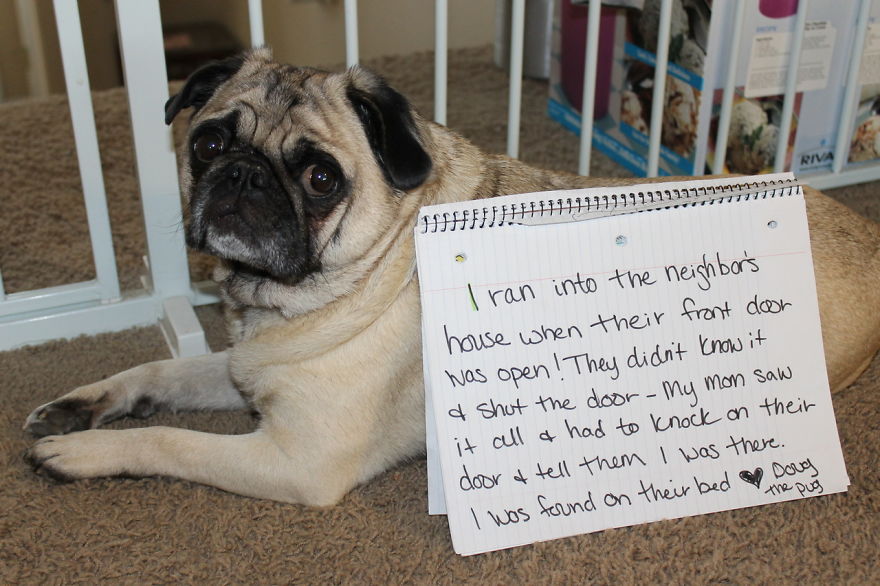 I ran into the neighbor's
house when their front door
was open! They didn't know it
& shut the door - My mom saw
it all & had to knock on their
door & tell them I was there.
I was found on their bed ♥ Doug
the pug
RIVA